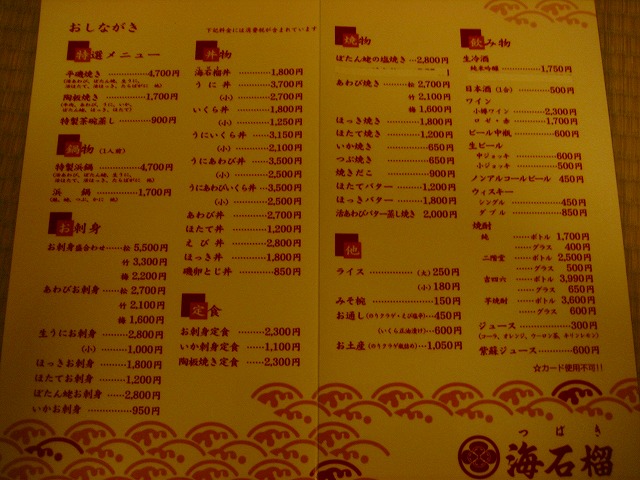 おしながき
下記料金には消費税が含まれています
特選メニュー
平磯焼き …………4,700円
陶板焼き …………1,700円
特製茶碗蒸し ………900円
鍋物 (1人前)
特製浜鍋 …………4,700円
浜鍋 …………1,700円
お刺身
お刺身盛合わせ……松 5,500円
竹 3,300円
梅 2,200円
あわびお刺身 ……松 2,700円
竹 2,100円
梅 1,600円
生うにお刺身 ………2,800円
(小) ………1,000円
ほっきお刺身 ………1,800円
ほたてお刺身 ………1,200円
ぼたん蛯お刺身 ……2,800円
いかお刺身 …………950円
丼物
海石榴丼 …………1,800円
うに丼 …………3,700円
(小) …………2,700円
いくら丼 …………1,800円
(小) …………1,250円
うにいくら丼 ………3,150円
(小) …………2,100円
うにあわび丼 ………3,500円
(小) …………2,500円
うにあわびいくら丼 …3,500円
(小) …………2,500円
あわび丼 …………2,700円
ほたて丼 …………1,200円
えび丼 …………2,800円
ほっき丼 …………1,800円
磯卵とじ丼 …………850円
定食
お刺身定食 …………2,300円
いか刺身定食 ………1,100円
陶板焼き定食 ………2,300円
焼物
ぼたん蛯の塩焼き …2,800円
あわび焼き ………松 2,700円
竹 2,100円
梅 1,600円
ほっき焼き …………1,800円
ほたて焼き …………1,200円
いか焼き …………650円
つぶ焼き …………650円
焼きだこ …………900円
ほたてバター ………1,200円
ほっきバター ………1,800円
活あわびバター蒸し焼き 2,000円
他
ライス …………(大) 250円
(小) 180円
みそ椀 …………150円
お通し(のりクラゲ・えび塩辛) …450円
(いくら醤油漬け) …600円
お土産(のりクラゲ瓶詰め) …1,050円
飲み物
生冷酒
純米吟醸 …………1,750円
日本酒(1合) ………500円
ワイン
小樽ワイン …………2,300円
ロゼ・赤 …………1,700円
ビール中瓶 …………600円
生ビール
中ジョッキ …………600円
小ジョッキ …………500円
ノンアルコールビール 450円
ウィスキー
シングル …………450円
ダブル …………850円
焼酎
純 …………ボトル 1,700円
……グラス 400円
二階堂 …………ボトル 2,500円
……グラス 500円
吉四六 …………ボトル 3,990円
……グラス 650円
芋焼酎 …………ボトル 3,600円
……グラス 600円
ジュース …………300円
(コーラ、オレンジ、ウーロン茶、キリンレモン)
紫蘇ジュース ………600円
☆カード使用不可!!
つばき
海石榴